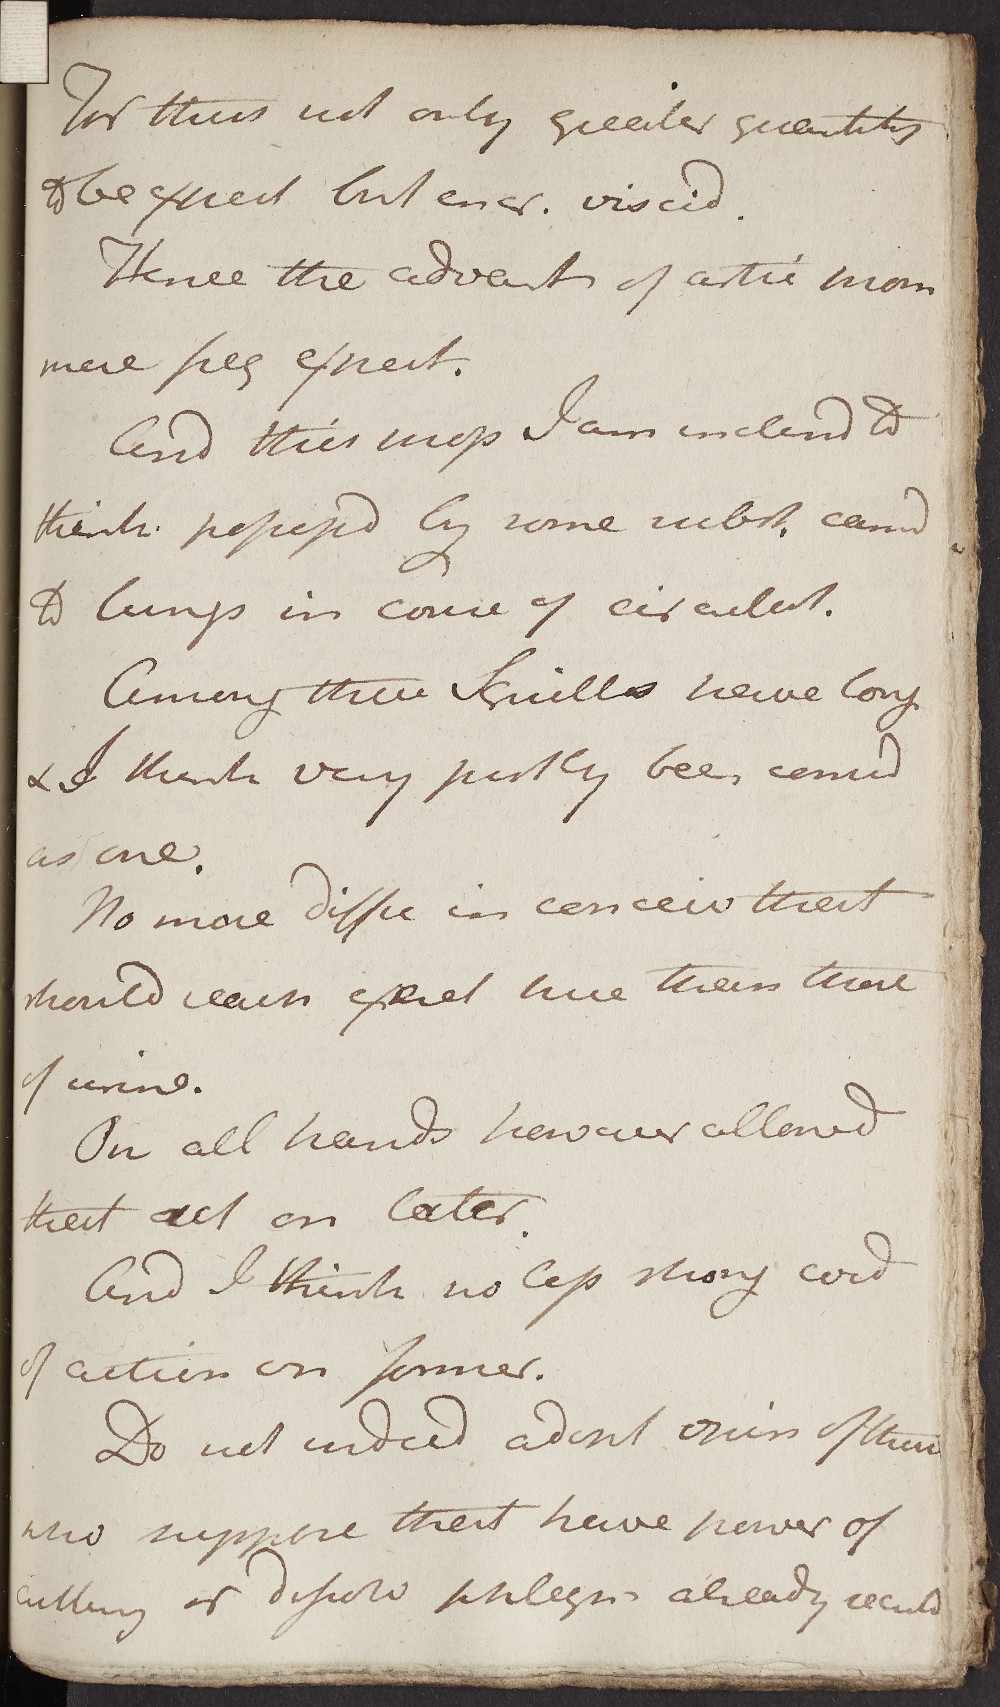 For thus not only greater quantity
to be expect but ener. viscid.
Hence the advant of artic mom
mere freq expect.
And this mop I am inclind to
think possess'd by some subst. carrid
to lungs in course of circulat.
Among these Squills have long
& I think very justly been consid
as one.
No more diffic in conceiv that
should reach exact here than those
of urine.
On all hands however allowed
that act on latter.
And I think no less strong evid
of action on former.
Do not indeed adopt opin of those
who suppose that have power of
cutting or dissolv phlegm already secretd